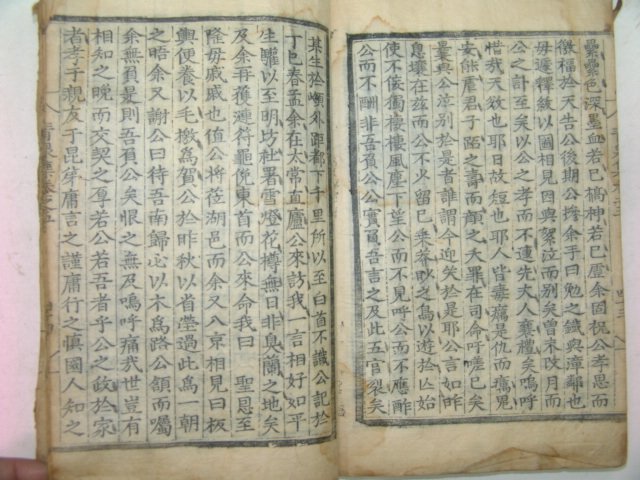 纍纍色深墨血若已槁神若已虛余固祝公孝思而
徼福於天告公後期公搀余手曰勉之鐵與漳鄰也
毋遲釋斂以國相見因與絮泣而别矣曾未改月而
公之訃至矣以公之孝而不逮先大人襄禮矣嗚呼
惜我天欲也耶曰故短也耶人皆毒癘是仇而癘鬼
安能虐君子跖之壽而顏之夭罪在司命吁嗟已矣
最與公泣别於是者誰謂今迎哭於是耶公言何
息壤在茲而公不少留已乘莽眇之鳥以遊於亾始
使不侫獨棲棲風塵下望公而不見呼公而不應酢
公而不酬非吾負公公實吾言之及此五官裂矣
某生於嶺外距都下千里所以至白首不識公記於
丁巳春孟余在太常直廬公來訪我一言相好如平
生驩以至明坊社署雪燈花樽無日非臭蘭之地矣
及余再獲漣符龜俛東首而公來命我曰 聖恩至
隆毋戚戚也值公將莅湖邑而余又入京相見曰板
輿便養以毛檄爲賀公於昨秋以省塋過此爲一朝
之晤余又謝公曰待吾南歸必以木爲路公頷而囑
余無負最則吾負公矣眼之無及嗚呼痛我世豈有
相知之晚而交契之厚若公若吾者乎公之政於家
者孝于親友于昆弟庸言之謹庸行之愼國人知之